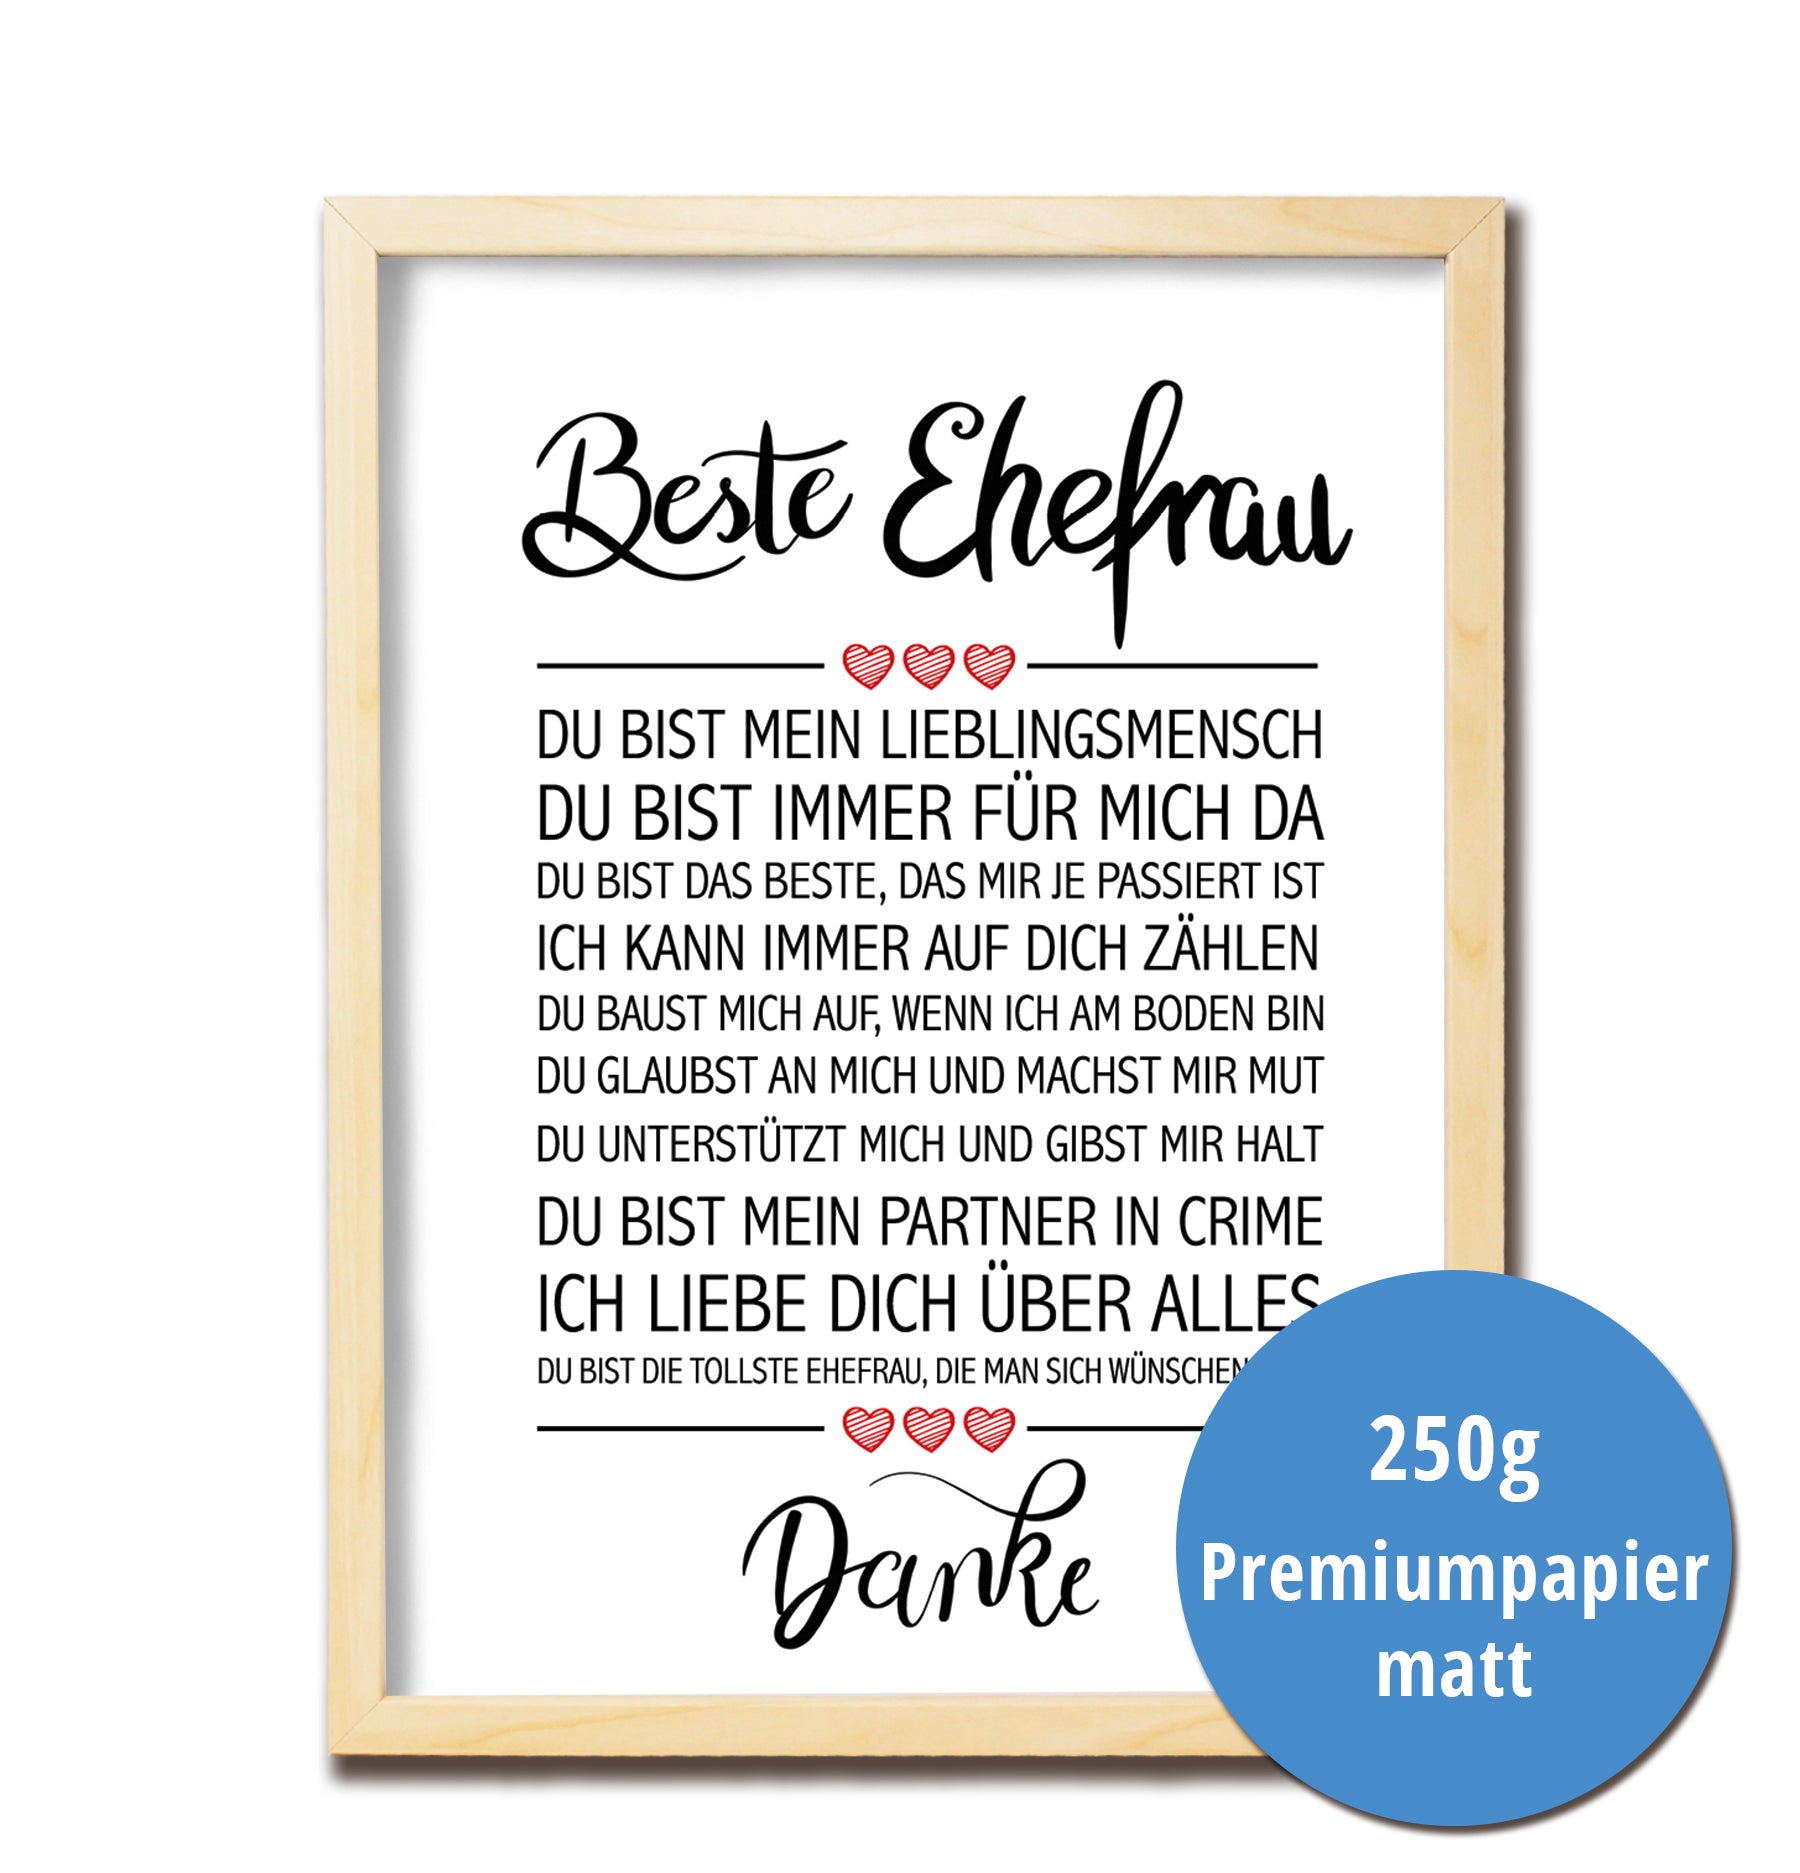 Beste Ehefrau
DU BIST MEIN LIEBLINGSMENSCH
DU BIST IMMER FÜR MICH DA
DU BIST DAS BESTE, DAS MIR JE PASSIERT IST
ICH KANN IMMER AUF DICH ZÄHLEN
DU BAUST MICH AUF, WENN ICH AM BODEN BIN
DU GLAUBST AN MICH UND MACHST MIR MUT
DU UNTERSTÜTZT MICH UND GIBST MIR HALT
DU BIST MEIN PARTNER IN CRIME
ICH LIEBE DICH ÜBER ALLES
DU BIST DIE TOLLSTE EHEFRAU, DIE MAN SICH WÜNSCHEN
Danke
250g
Premiumpapier
matt